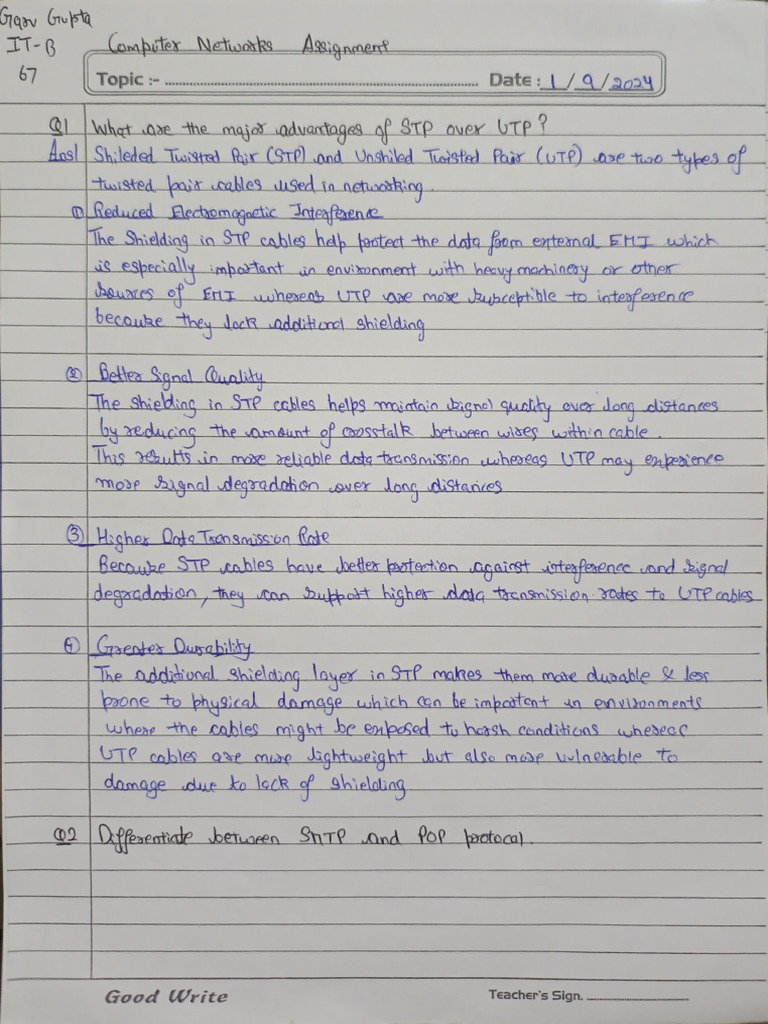 Garv Gupta
IT-B Computer Networks Assignment
67
Topic :- Date : 1/9/2024
Q1 What are the major advantages of STP over UTP?
Ans1 Shileded Twisted Pair (STP) and Unshiled Twisted Pair (UTP) are two types of
twisted pair cables used in networking.
① Reduced Electromagnetic Interference
The Shielding in STP cables help protect the data from external EMI which
is especially important in environment with heavy machinery or other
sources of EMI whereas UTP are more susceptible to interference
because they lack additional shielding
② Better Signal Quality
The shielding in STP cables helps maintain signal quality over long distances
by reducing the amount of crosstalk between wires within cable.
This results in more reliable data transmission whereas UTP may experience
more signal degradation over long distances
③ Higher Data Transmission Rate
Because STP cables have better protection against interference and signal
degradation, they can support higher data transmission rates to UTP cables
④ Greater Durability
The additional shielding layer in STP makes them more durable & less
prone to physical damage which can be important in environments
where the cables might be exposed to harsh conditions whereas
UTP cables are more lightweight but also more vulnerable to
damage due to lack of shielding
Q2 Differentiate between SMTP and POP protocal.
Good Write Teacher's Sign.